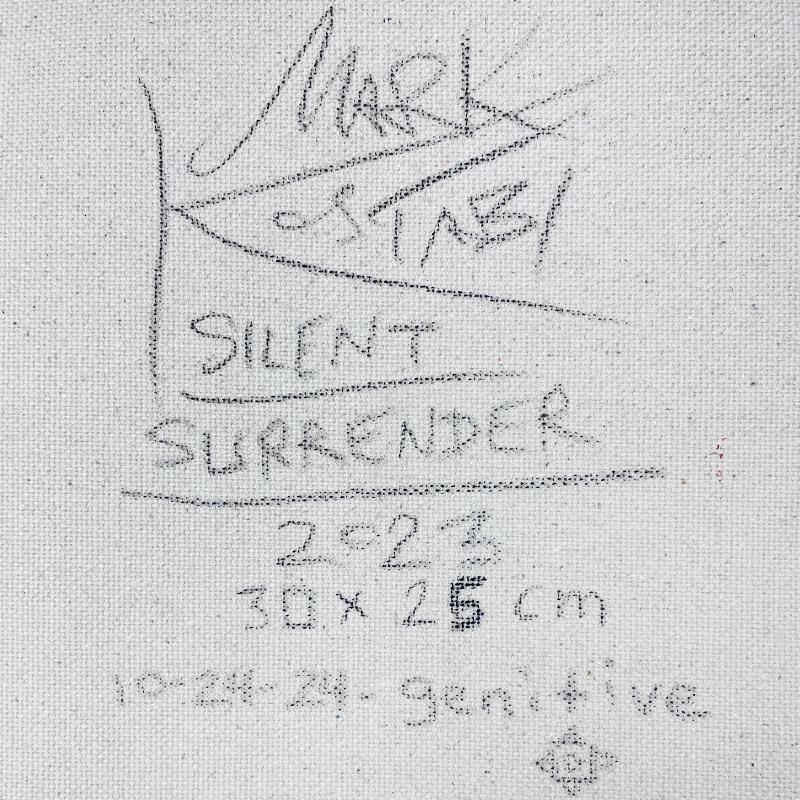 MARK
KOSTABI
SILENT
SURRENDER
2023
30 x 25 cm
10-24-24- genitive